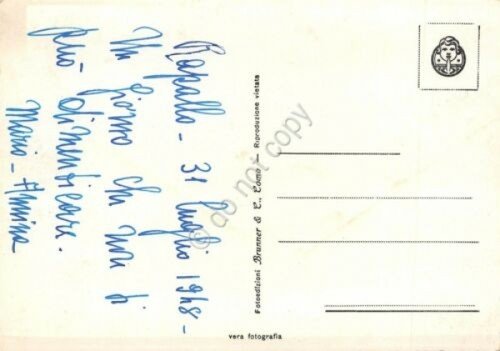 Rapallo - 31 luglio 1948 -
Un giorno che mai si
può dimenticare.
Mario - Annina
Fotoedizioni Brunner & C., Como — Riproduzione vietata
vera fotografia
do not copy